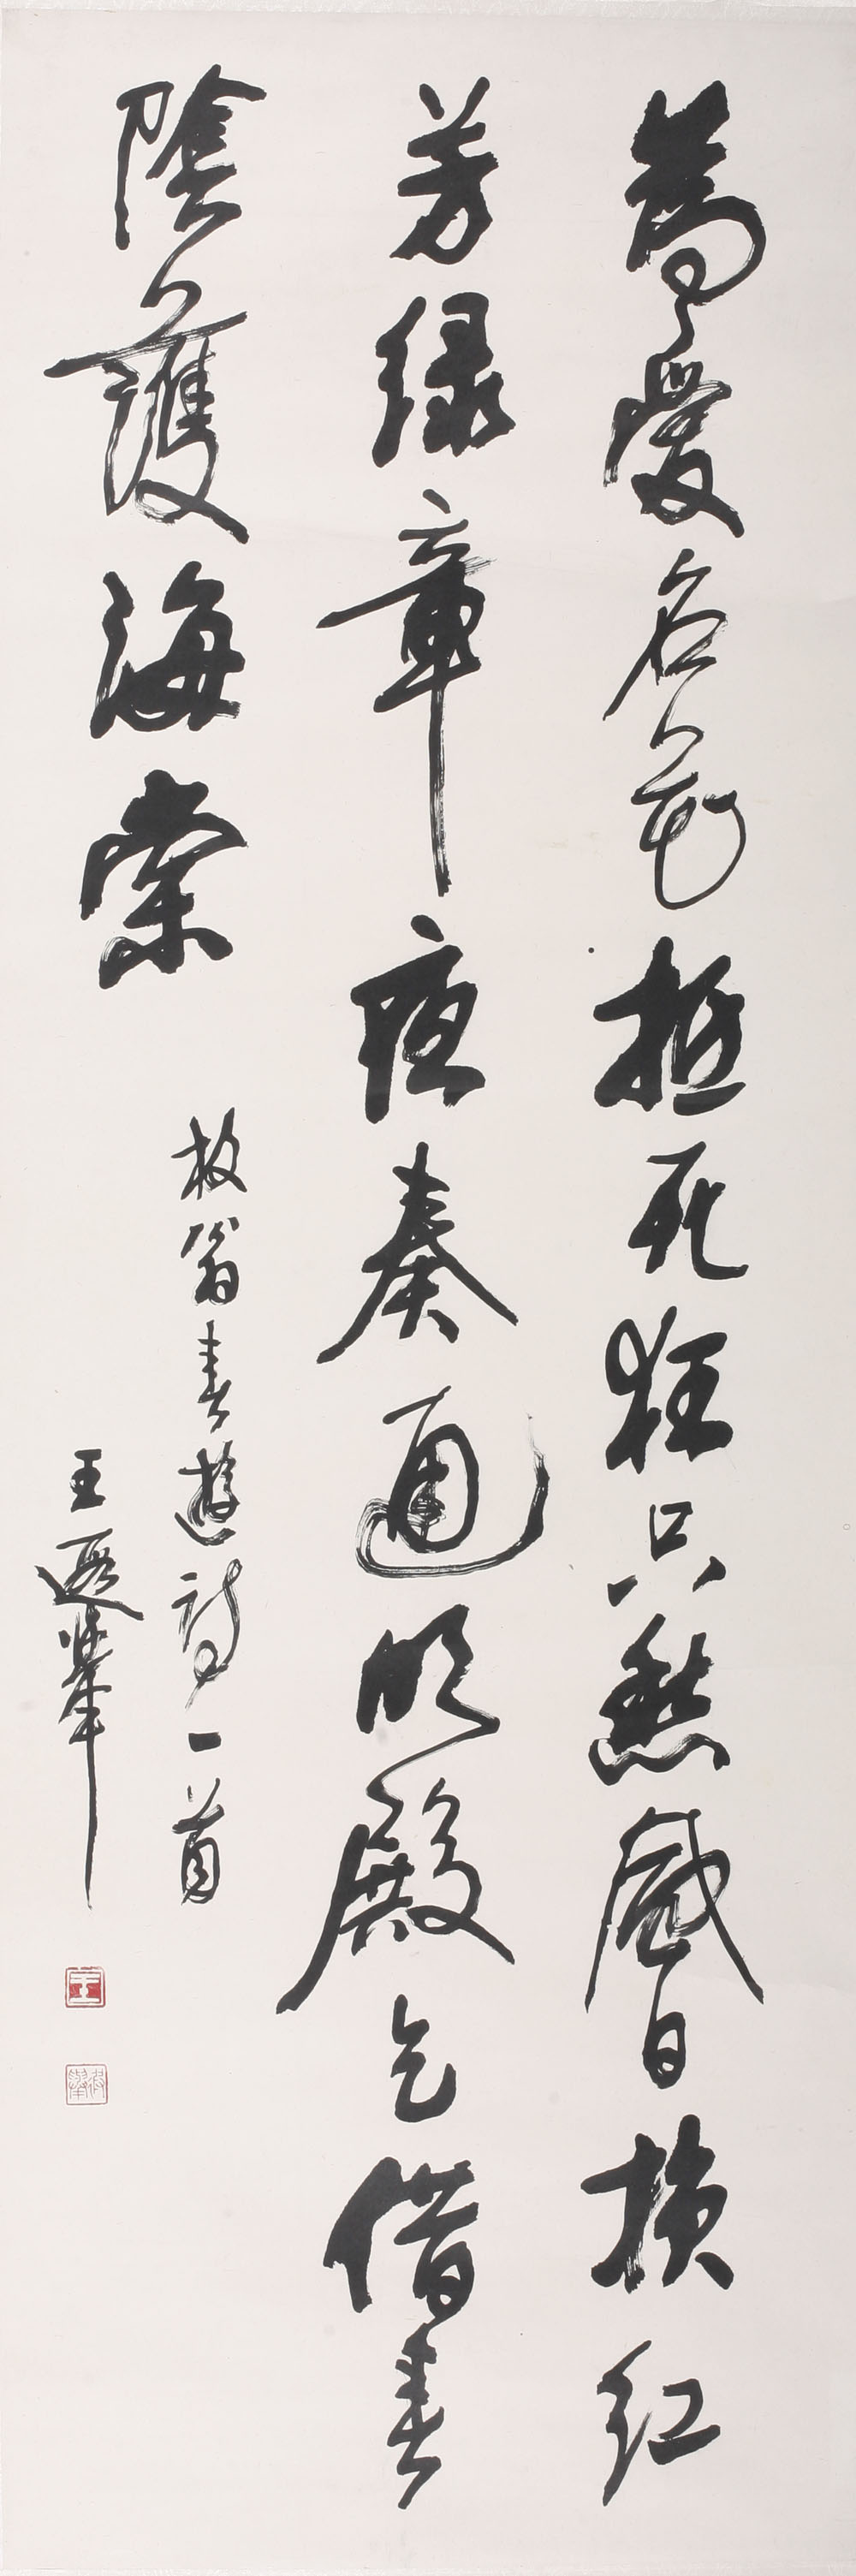 為愛名花抵死狂只愁風日損紅
芳綠章夜奏通明殿乞借春
陰護海棠
放翁春遊詩一首
王遐舉
王
遐舉